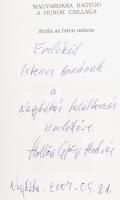 MAGYAROKRA RAGYOG
A HUNOK CSILLAGA
Attila az Isten ostora
Emlékül
Istenes Annának
a
Nagykátai találkozás
emlékére
Nagykáta, 2007.05.21.